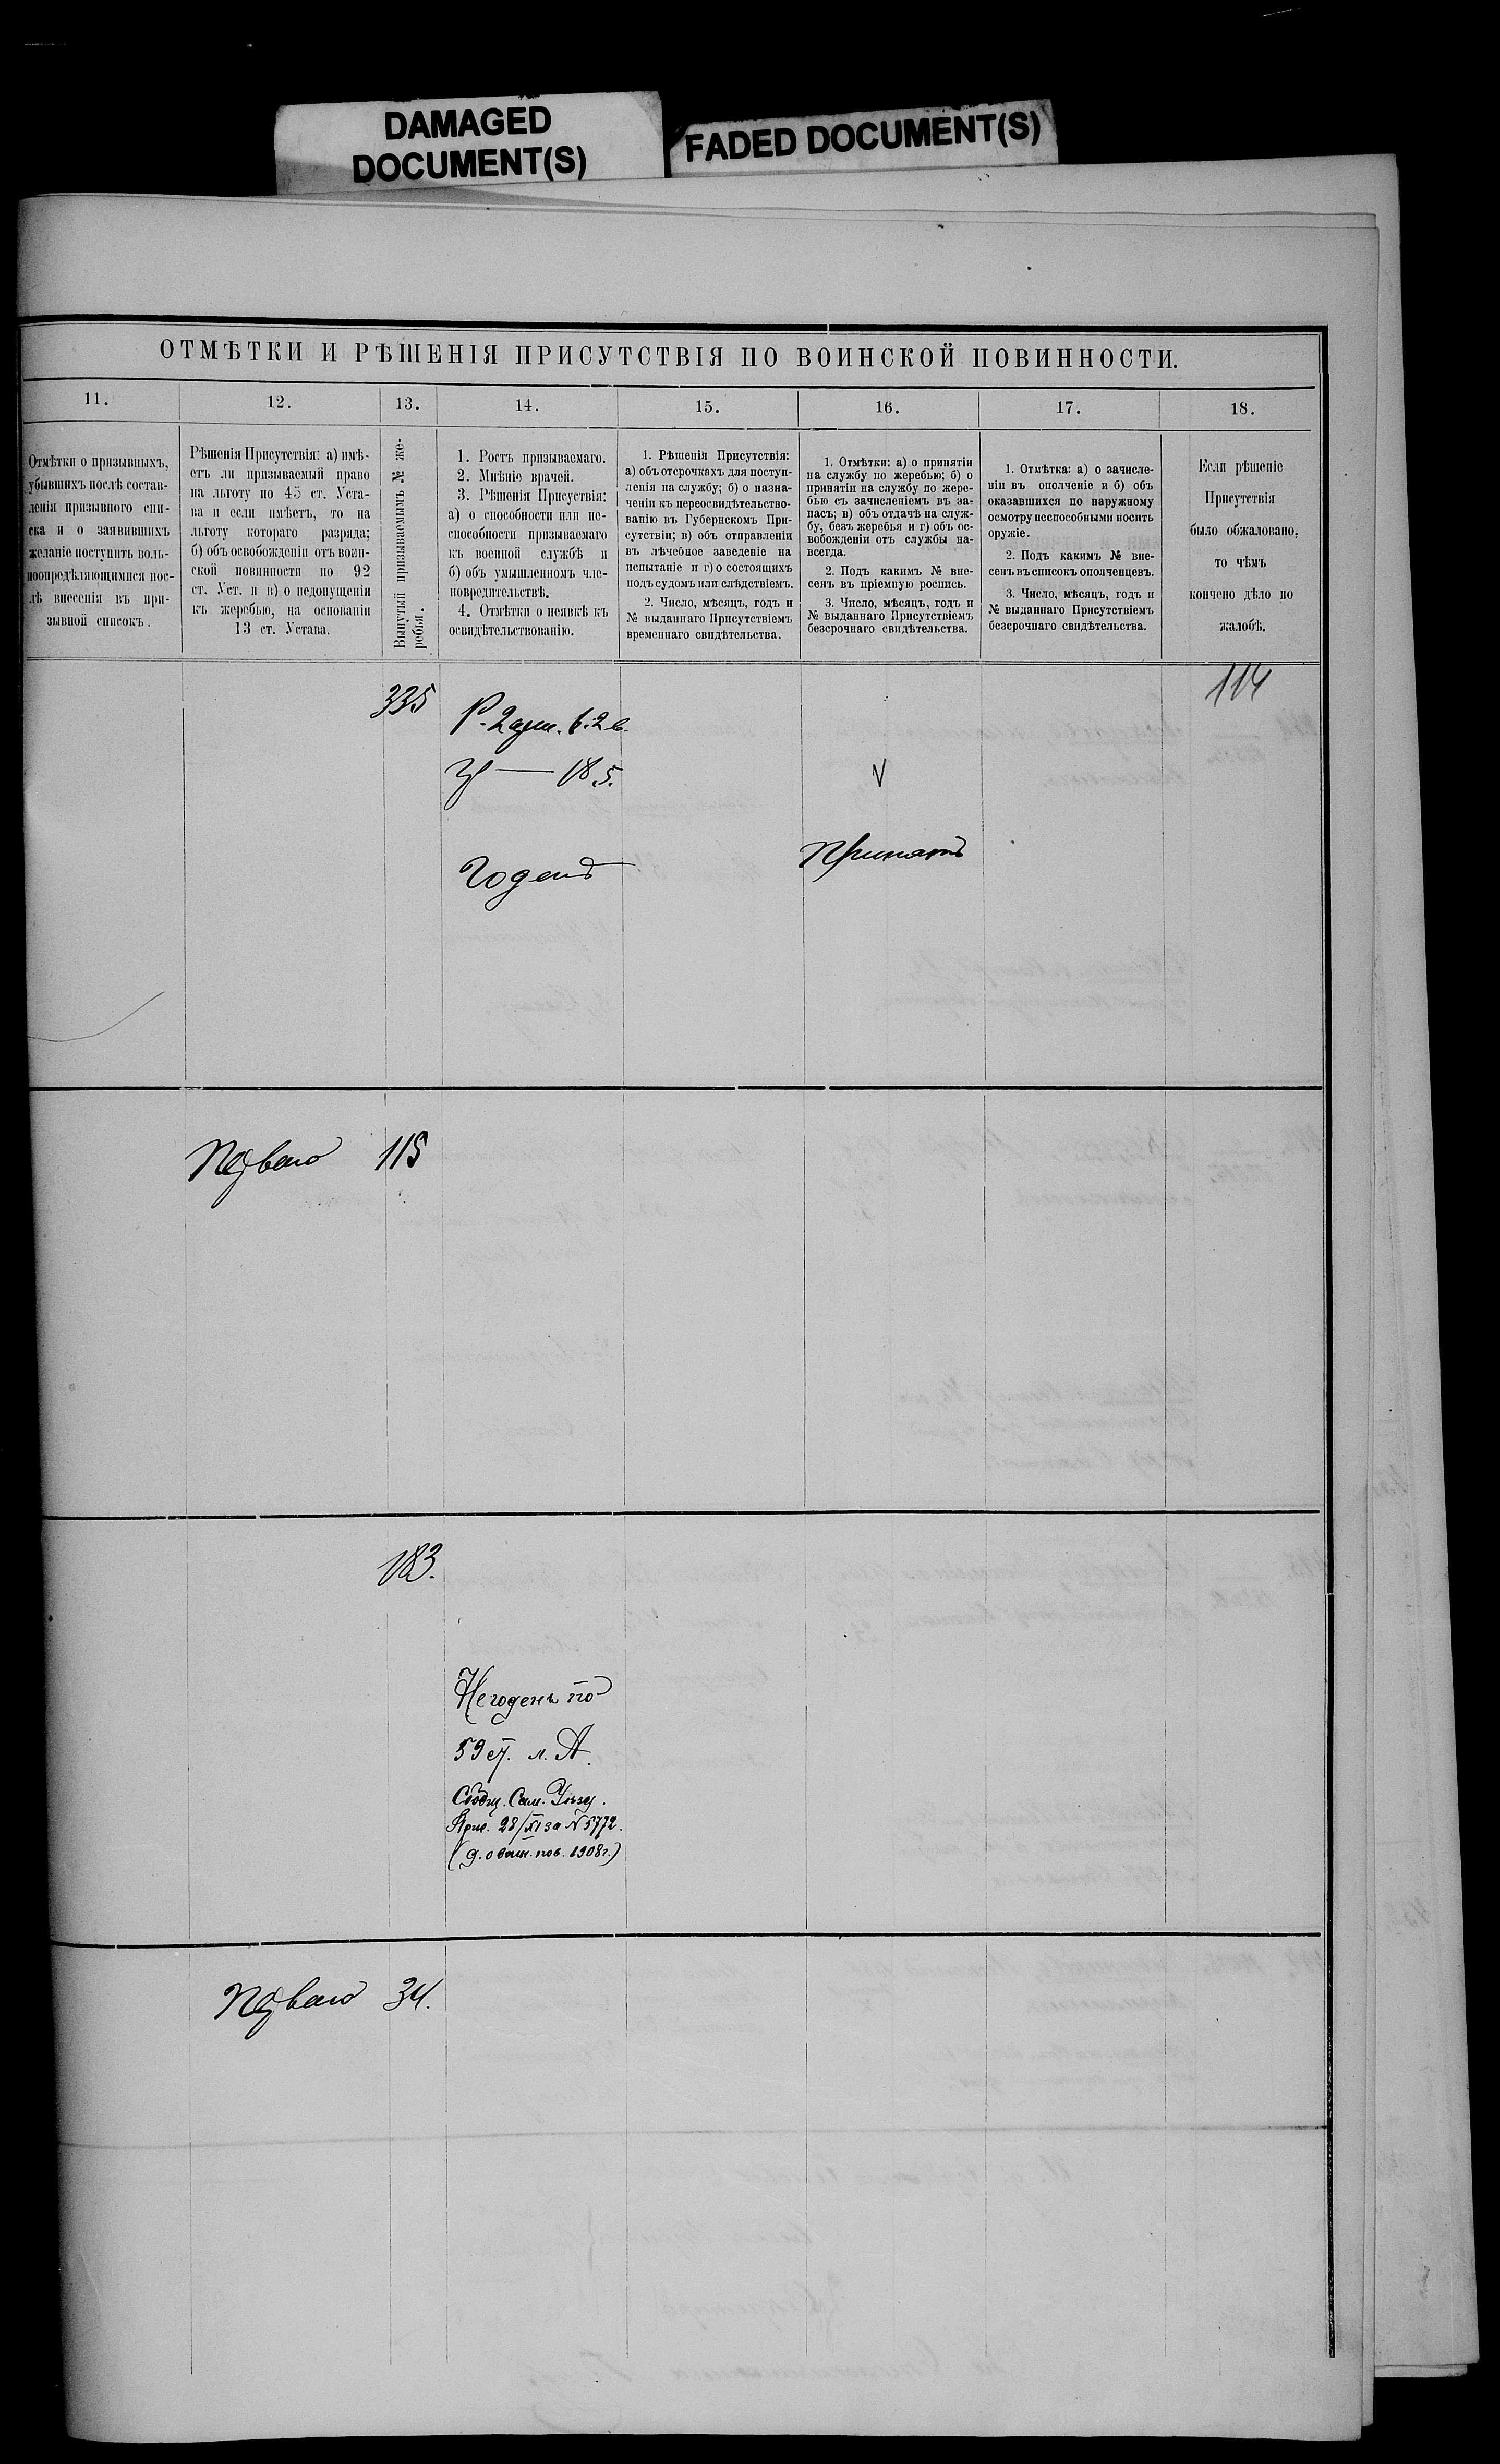 DAMAGED
DOCUMENT(S)
FADED DOCUMENT(S)
ОТМѢТКИ И РѢШЕНІЯ ПРИСУТСТВІЯ ПО ВОИНСКОЙ ПОВИННОСТИ.
11.
12.
13.
14.
15.
16.
17.
18.
Отмѣтки о призывныхъ,
убывшихъ послѣ состав-
ленія призывного спи-
ска и о заявившихъ
желаніе поступить воль-
ноопредѣляющимися пос-
лѣ внесенія въ при-
зывной списокъ.
Рѣшенія Присутствія: а) имѣ-
етъ ли призываемый право
на льготу по 45 ст. Уста-
ва и если имѣетъ, то на
льготу котораго разряда;
б) объ освобожденіи отъ воин-
ской повинности по 92
ст. Уст. и в) о недопущеніи
къ жеребью, на основаніи
13 ст. Устава.
Вынутый призываемымъ № же-
ребья.
1. Ростъ призываемаго.
2. Мнѣніе врачей.
3. Рѣшенія Присуствія:
а) о способности или не-
способности призываемаго
къ военной службѣ и
б) объ умышленномъ чле-
новредительствѣ.
4. Отмѣтки о неявкѣ къ
освидѣтельствованію.
1. Рѣшенія Присутствія:
а) объ отсрочкахъ для поступ-
ленія на службу; б) о назна-
ченіи къ переосвидѣтельство-
ванію въ Губернскомъ При-
сутствіи; в) объ отправленіи
въ лѣчебное заведеніе на
испытаніе и г) о состоящихъ
подъ судомъ или слѣдствіемъ.
2. Число, мѣсяцъ, годъ и
№ выданнаго Присутствіемъ
временнаго свидѣтельства.
1. Отмѣтки: а) о принятіи
на службу по жеребью; б) о
принятіи на службу по жере-
бью съ зачисленіемъ въ за-
пасъ; в) объ отдачѣ на служ-
бу, безъ жеребья и г) объ ос-
вобожденіи отъ службы на-
всегда.
2. Подъ какимъ № вне-
сенъ въ пріемную роспись.
3. Число, мѣсяцъ, годъ и
№ выданнаго Присутствіемъ
безсрочнаго свидѣтельства.
1. Отмѣтка: а) о зачисле-
ніи въ ополченіе и б) объ
оказавшихся по наружному
осмотру неспособными носить
оружіе.
2. Подъ какимъ № вне-
сенъ въ списокъ ополченцевъ.
3. Число, мѣсяцъ, годъ и
№ выданнаго Присутствіемъ
безсрочнаго свидѣтельства.
Если рѣшеніе
Присутствія
было обжаловано,
то чѣмъ
кончено дѣло по
жалобѣ.
114
335
Р. 2 арш. 6. 2 в.
— 18,5.
V
Годенъ
Принятъ
115
183.
Негоденъ по
59 ст. л. А.
Сообщ. Сам. Уѣзд.
Прис. 28/XI за N 5772.
(д. о воин. пов. 1908 г.)
34.